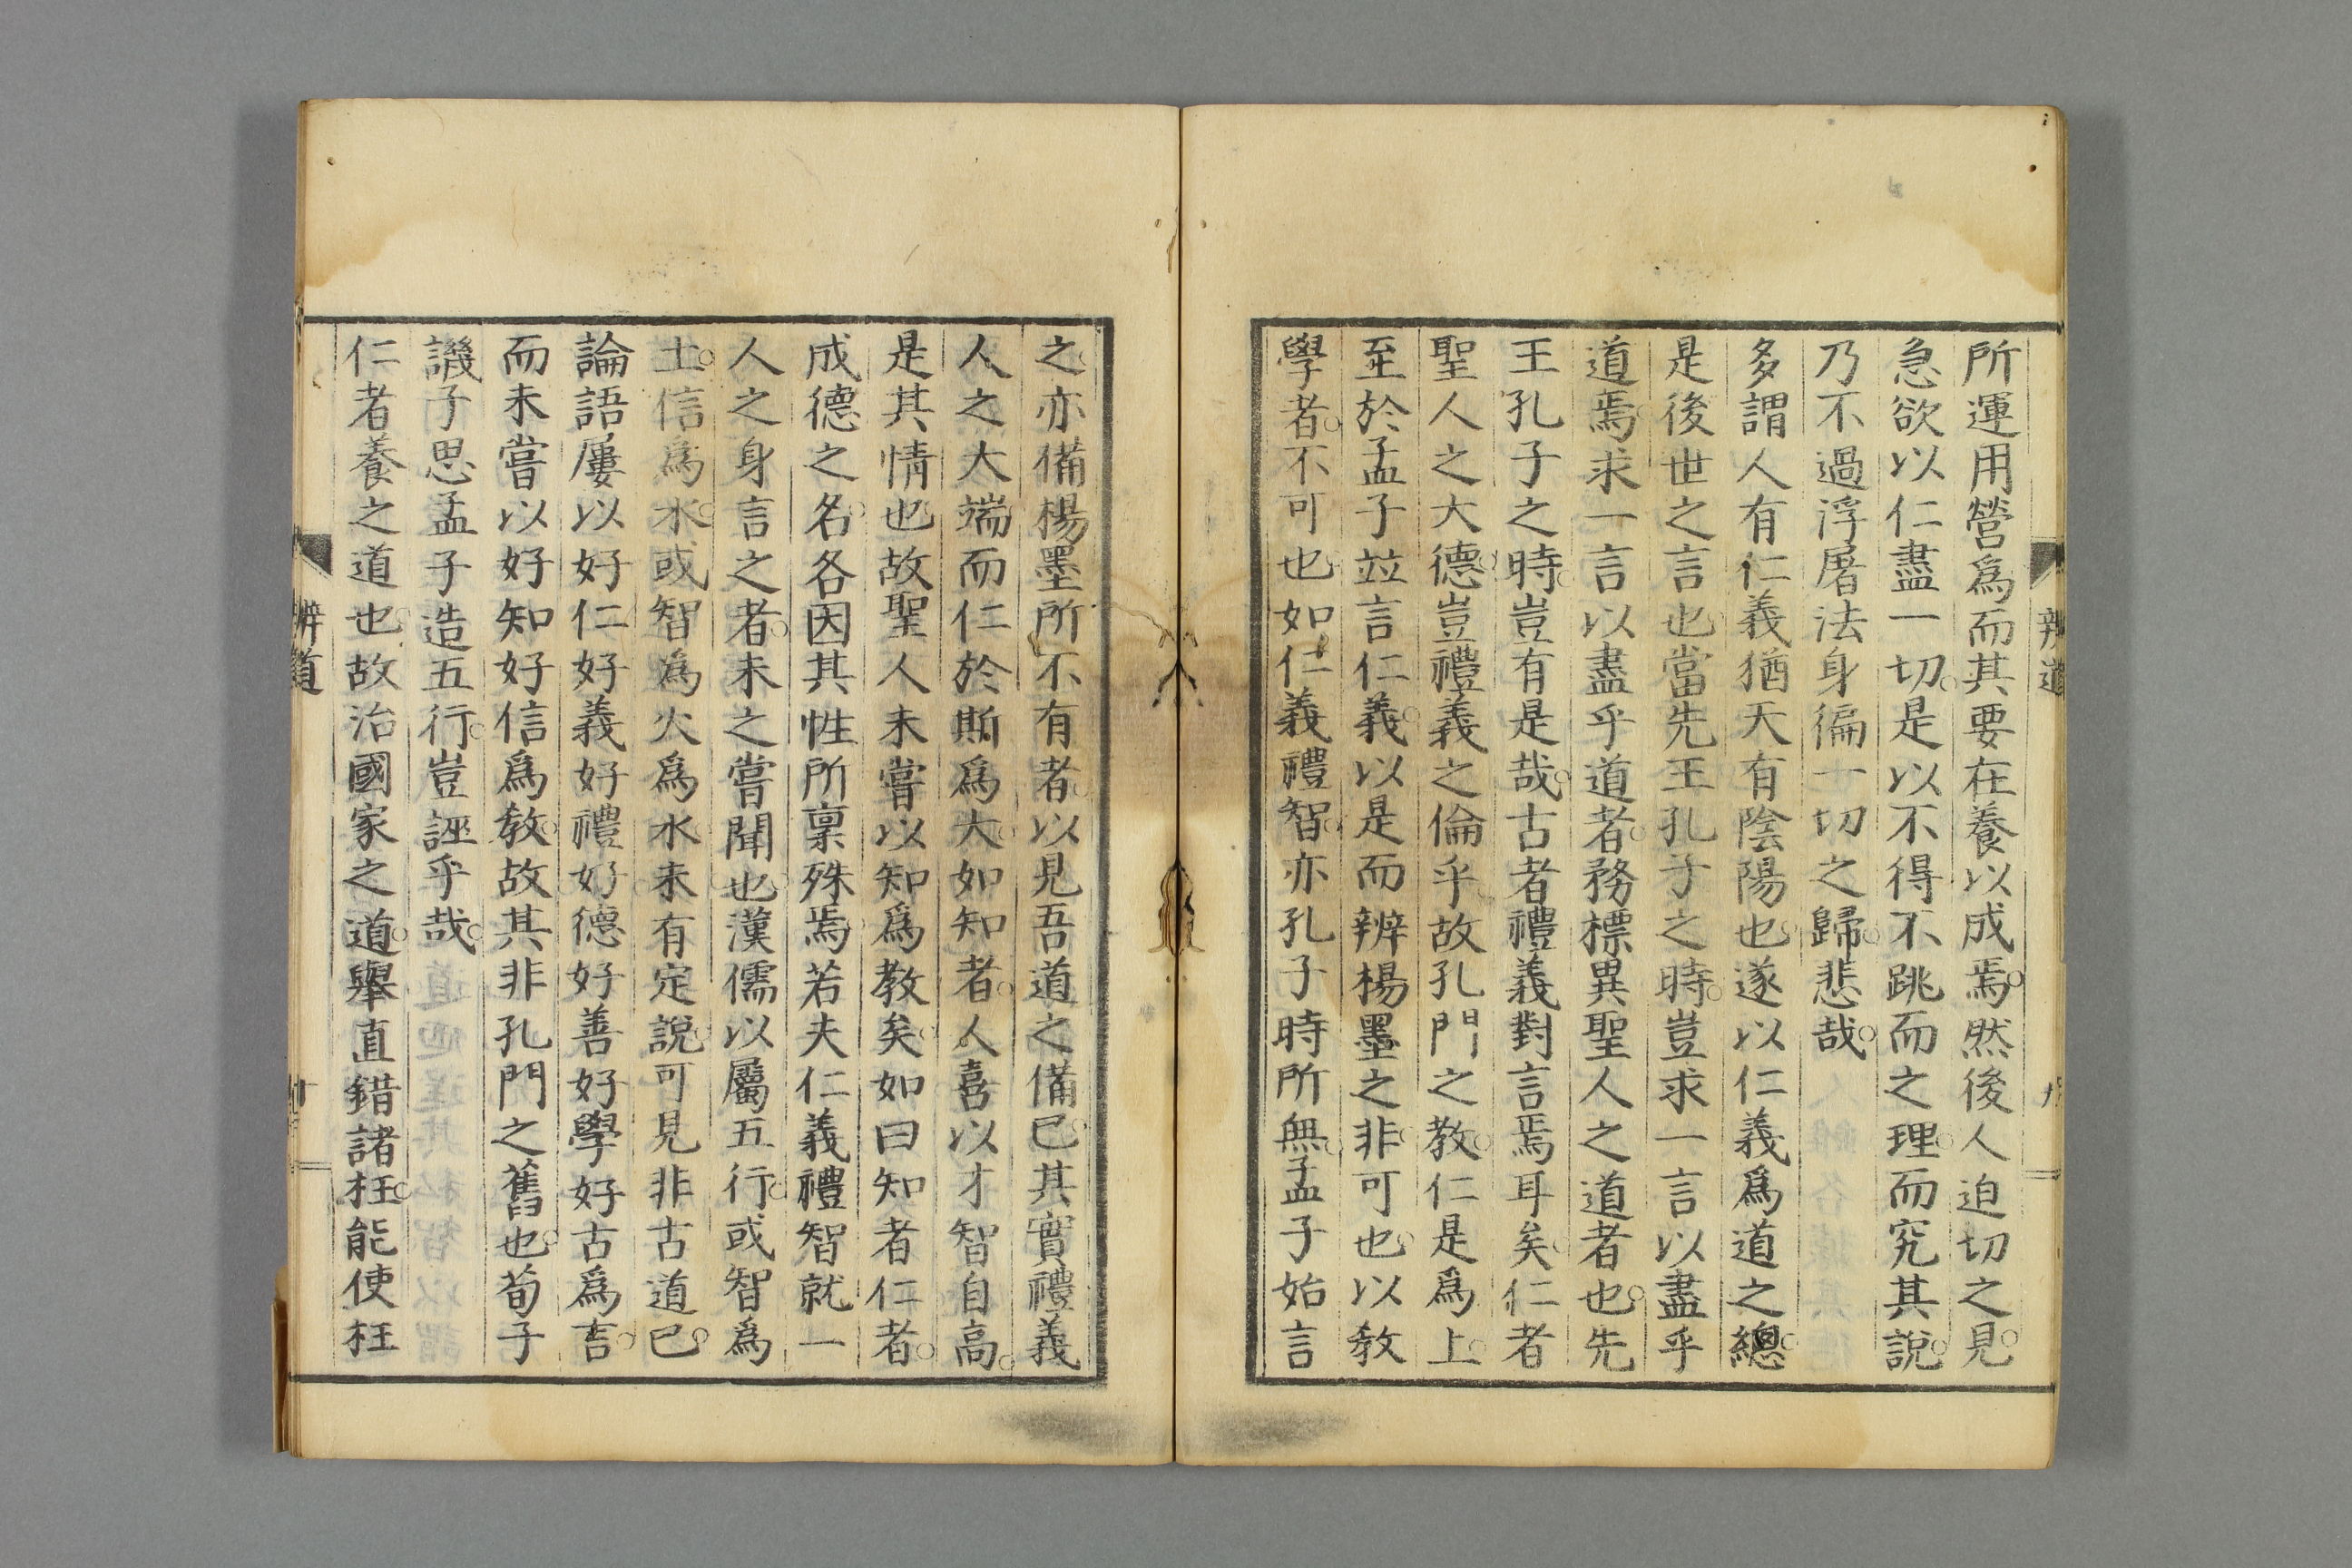 辨道
所運用營爲而其要在養以成焉。然後人迫切之見。
急欲以仁盡一切。是以不得不跳而之理。而究其說。
乃不過浮屠法身徧一切之歸。悲哉。
多謂人有仁義猶天有陰陽也。遂以仁義爲道之總。
是後世之言也。當先王孔子之時。豈求一言以盡乎
道焉。求一言以盡乎道者。務標異聖人之道者也。先
王孔子之時。豈有是哉。古者禮義對言焉耳矣。仁者
聖人之大德。豈禮義之倫乎。故孔門之教。仁是爲上。
至於孟子竝言仁義。以是而辨楊墨之非。可也。以教
學者。不可也。如仁義禮智。亦孔子時所無。孟子始言
之。亦備楊墨所不有者。以見吾道之備已。其實禮義
人之大端。而仁於斯爲大。如知者。人喜以才智自高。
是其情也。故聖人未嘗以知爲教矣。如曰知者仁者。
成德之名。各因其性所稟殊焉。若夫仁義禮智就一
人之身言之者。未之嘗聞也。漢儒以屬五行。或智爲
土。信爲水。或智爲火爲水。未有定說。可見非古道已。
論語屢以好仁好義好禮好德好善好學好古爲言。
而未嘗以好知好信爲教。故其非孔門之舊也。荀子
譏子思孟子造五行。豈誣乎哉。
仁者養之道也。故治國家之道。舉直錯諸枉。能使枉
辨道